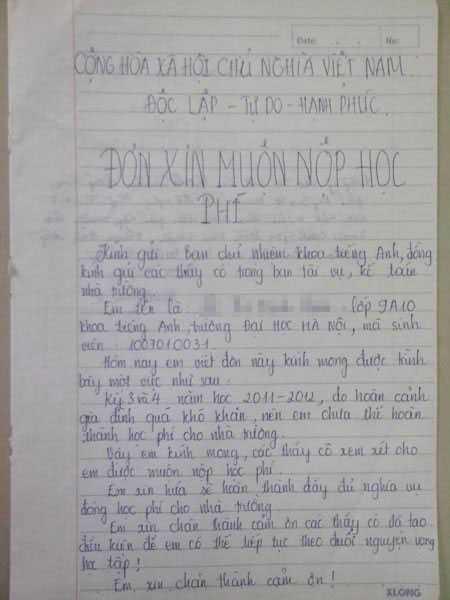 Date: . . No:
CỘNG HÒA XÃ HỘI CHỦ NGHĨA VIỆT NAM
ĐỘC LẬP - TỰ DO - HẠNH PHÚC
ĐƠN XIN MUỘN NỘP HỌC
PHÍ
Kính gửi Ban chủ nhiệm khoa tiếng Anh, đồng
kính gửi các thầy cô trong ban tài vụ, kế toán
nhà trường.
Em tên là lớp 9A10
khoa tiếng Anh, trường ĐẠI HỌC HÀ NỘI, mã sinh
viên 1007010031.
Hôm nay em viết đơn này kính mong được trình
bày một việc như sau:
Kỳ 3 và 4 năm học 2011-2012, do hoàn cảnh
gia đình quá khó khăn, nên em chưa thể hoàn
thành học phí cho nhà trường.
Vậy em kính mong, các thầy cô xem xét cho
em được muộn nộp học phí.
Em xin hứa sẽ hoàn thành đầy đủ nghĩa vụ
đóng học phí cho nhà trường
Em xin chân thành cảm ơn các thầy cô đã tạo
điều kiện để em có thể tiếp tục theo đuổi nguyện vọng
học tập!
Em xin chân thành cảm ơn!
KLONG